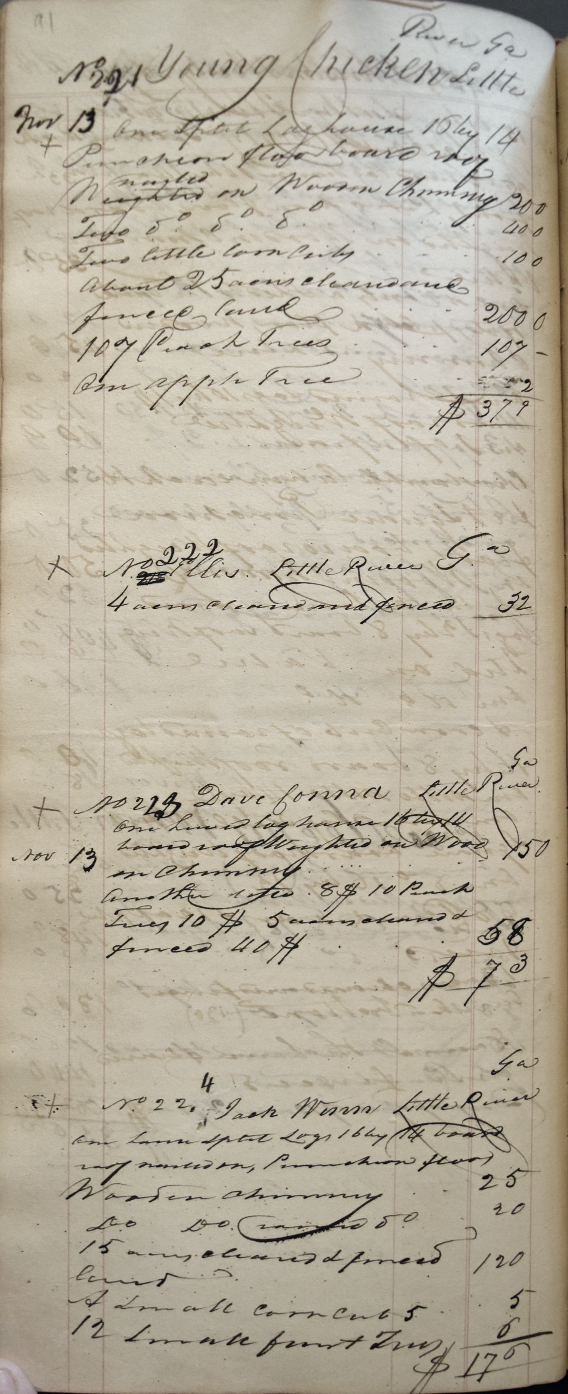 91
River Ga
No 221 Young Chicken Little
Nov 13 One Split Log house 16 by 14
+ Puncheon floor board roof
nailed
Weighted on Wooden Chimney 20 0
Two do do do 40 0
Two little Corn Cribs 10 0
About 25 acres cleared and
fenced land 200 0
107 Peach Trees 107 -
One apple Tree 2
$ 379
+ No 222 Ellis. Little River Ga
4 acres cleared and fenced 32
Ga
+ No 223 Dave Conna Little River
One hewed log house 16 by 14
Nov 13 board roof Weighted on Wood 15 0
en Chimney
Another 8$ 10 Peach
Trees 10 $ 5 acres cleared &
fenced 40 $ 58
$ 73
Ga
+ No 224 Jack Winn Little River
One Split Logs 16 by 14 board
roof nailed on, Puncheon floor
Wooden Chimney 25
Do Do do 20
15 acres cleared & fenced 120
land
A Small corn crib 5 5
12 Small fruit Trees 6
$ 176